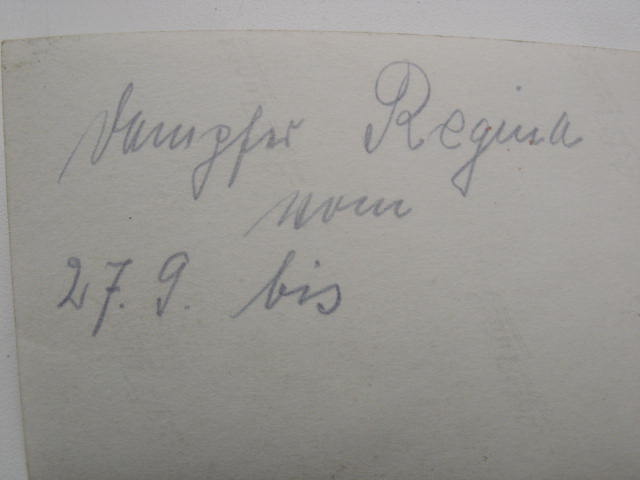 Dampfer Regina
vom
27. 9. bis